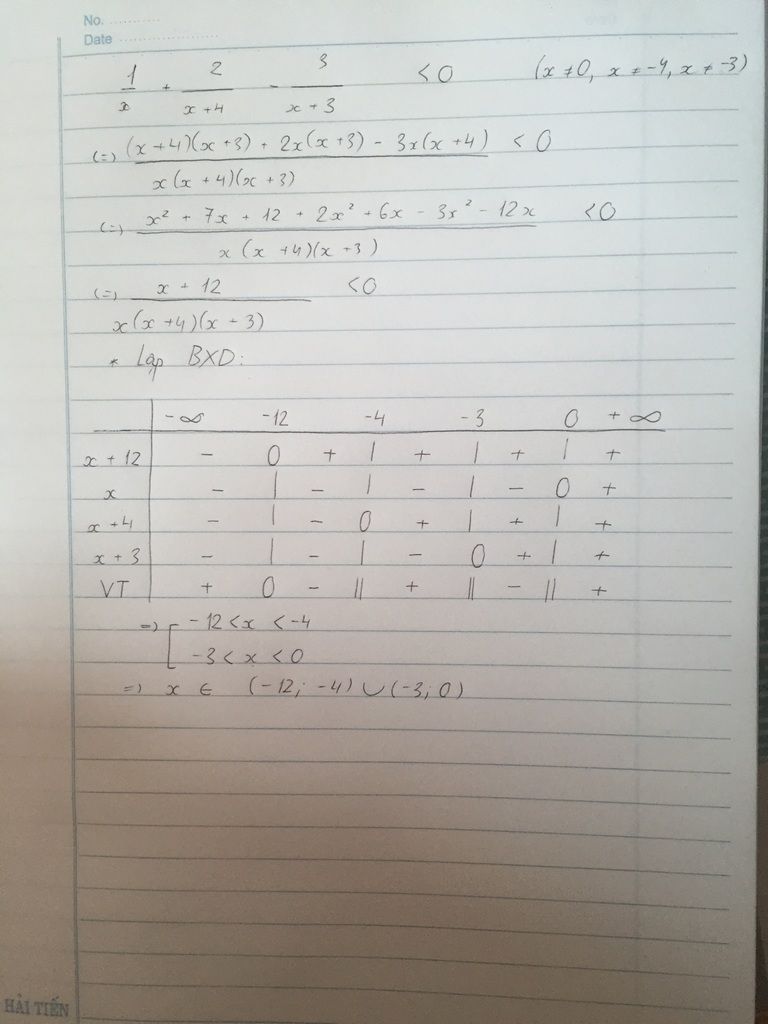 No. ............
Date .......................
1/x + 2/(x+4) - 3/(x+3) < 0 (x ≠ 0, x ≠ -4, x ≠ -3)
(=) ((x+4)(x+3) + 2x(x+3) - 3x(x+4))/(x(x+4)(x+3)) < 0
(=) (x² + 7x + 12 + 2x² + 6x - 3x² - 12x)/(x(x+4)(x+3)) < 0
(=) (x + 12)/(x(x+4)(x+3)) < 0
* Lập BXD:
-∞ -12 -4 -3 0 +∞
x + 12 - 0 + | + | + | +
x - | - | - | - 0 +
x + 4 - | - 0 + | + | +
x + 3 - | - | - 0 + | +
VT + 0 - || + || - || +
=) [ -12 < x < -4
-3 < x < 0
=) x ∈ (-12; -4) ∪ (-3; 0)
HẢI TIẾN